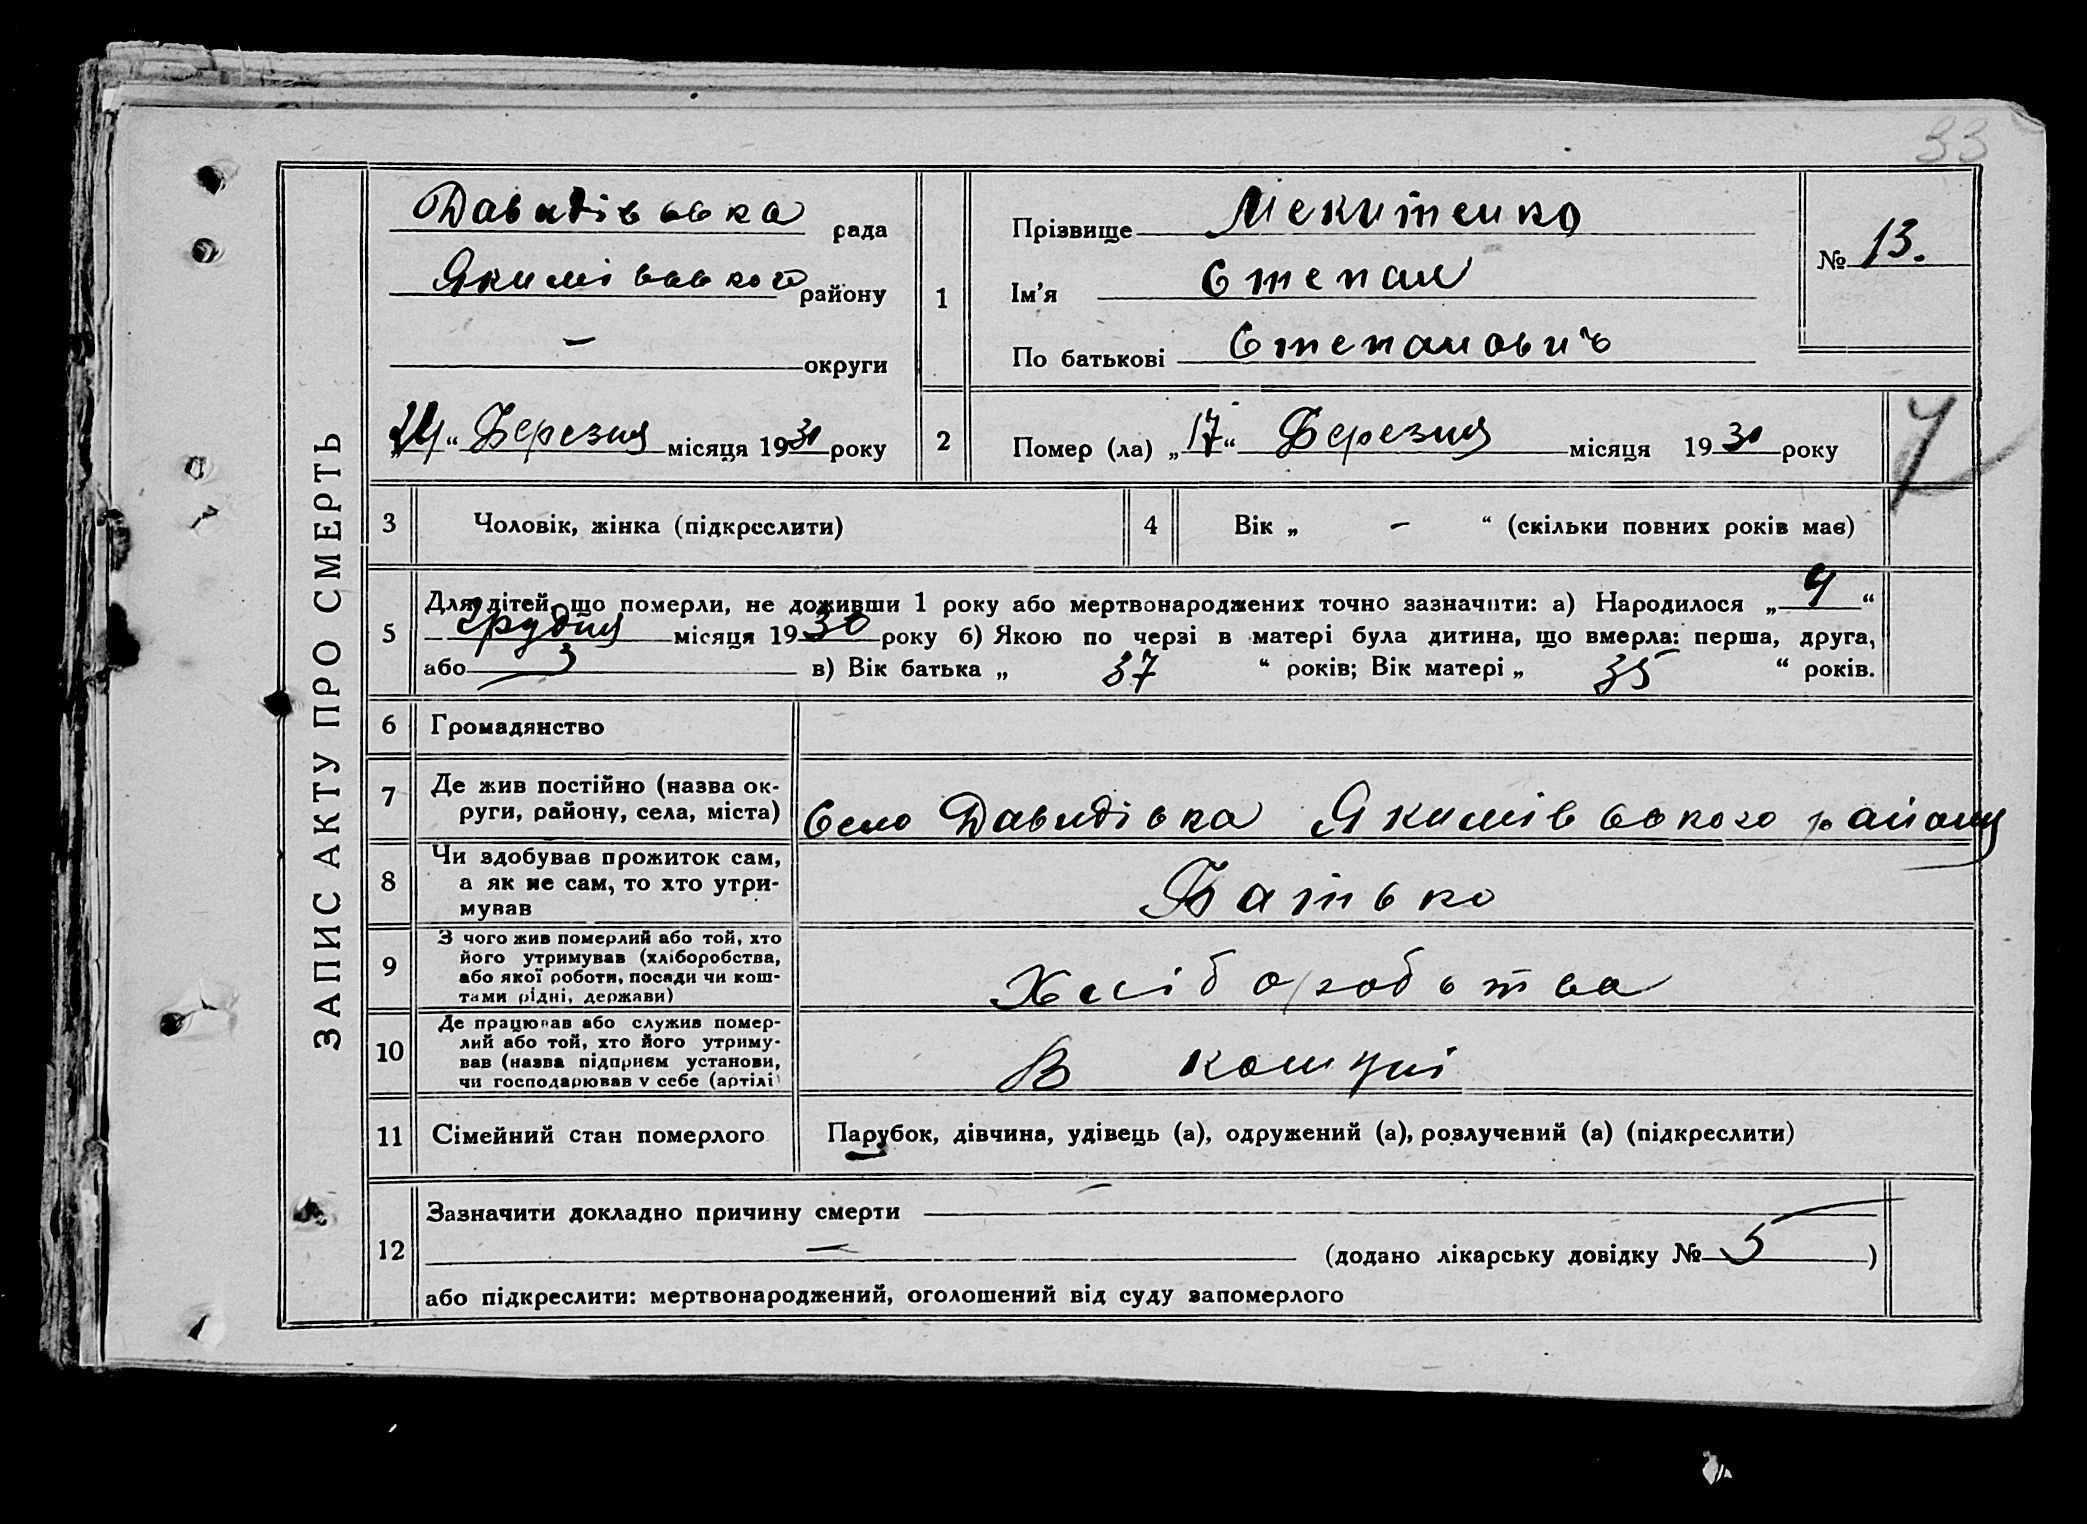 33
ЗАПИС АКТУ ПРО СМЕРТЬ
Давидівська рада
Якимівського району
— округи
„24“ Березня місяця 1930 року
1
Прізвище Мекитенко
Ім'я Степан
По батькові Степанович
№ 13.
2
Помер (ла) „17“ Березня місяця 1930 року
3 Чоловік, жінка (підкреслити)
4 Вік „ — “ (скільки повних років має)
5
Для дітей, що померли, не доживши 1 року або мертвонароджених точно зазначити: а) Народилося „9“
Грудня місяця 1930 року б) Якою по черзі в матері була дитина, що вмерла: перша, друга,
або 3 в) Вік батька „ 37 “ років; Вік матері „ 35 “ років.
6 Громадянство
7 Де жив постійно (назва округи, району, села, міста) Село Давидівка Якимівського району
8 Чи здобував прожиток сам,
а як не сам, то хто утри-
мував
Батько
9 З чого жив померлий або той, хто
його утримував (хліборобства,
або якої роботи, посади чи кош-
тами рідні, держави)
Хліборобства
10 Де працював або служив помер-
лий або той, хто його утриму-
вав (назва підприєм установи,
чи господарював у себе (артілі)
В комуні
11 Сімейний стан померлого Парубок, дівчина, удівець (а), одружений (а), розлучений (а) (підкреслити)
12
Зазначити докладно причину смерти —
— (додано лікарську довідку № 5)
або підкреслити: мертвонароджений, оголошений від суду запомерлого